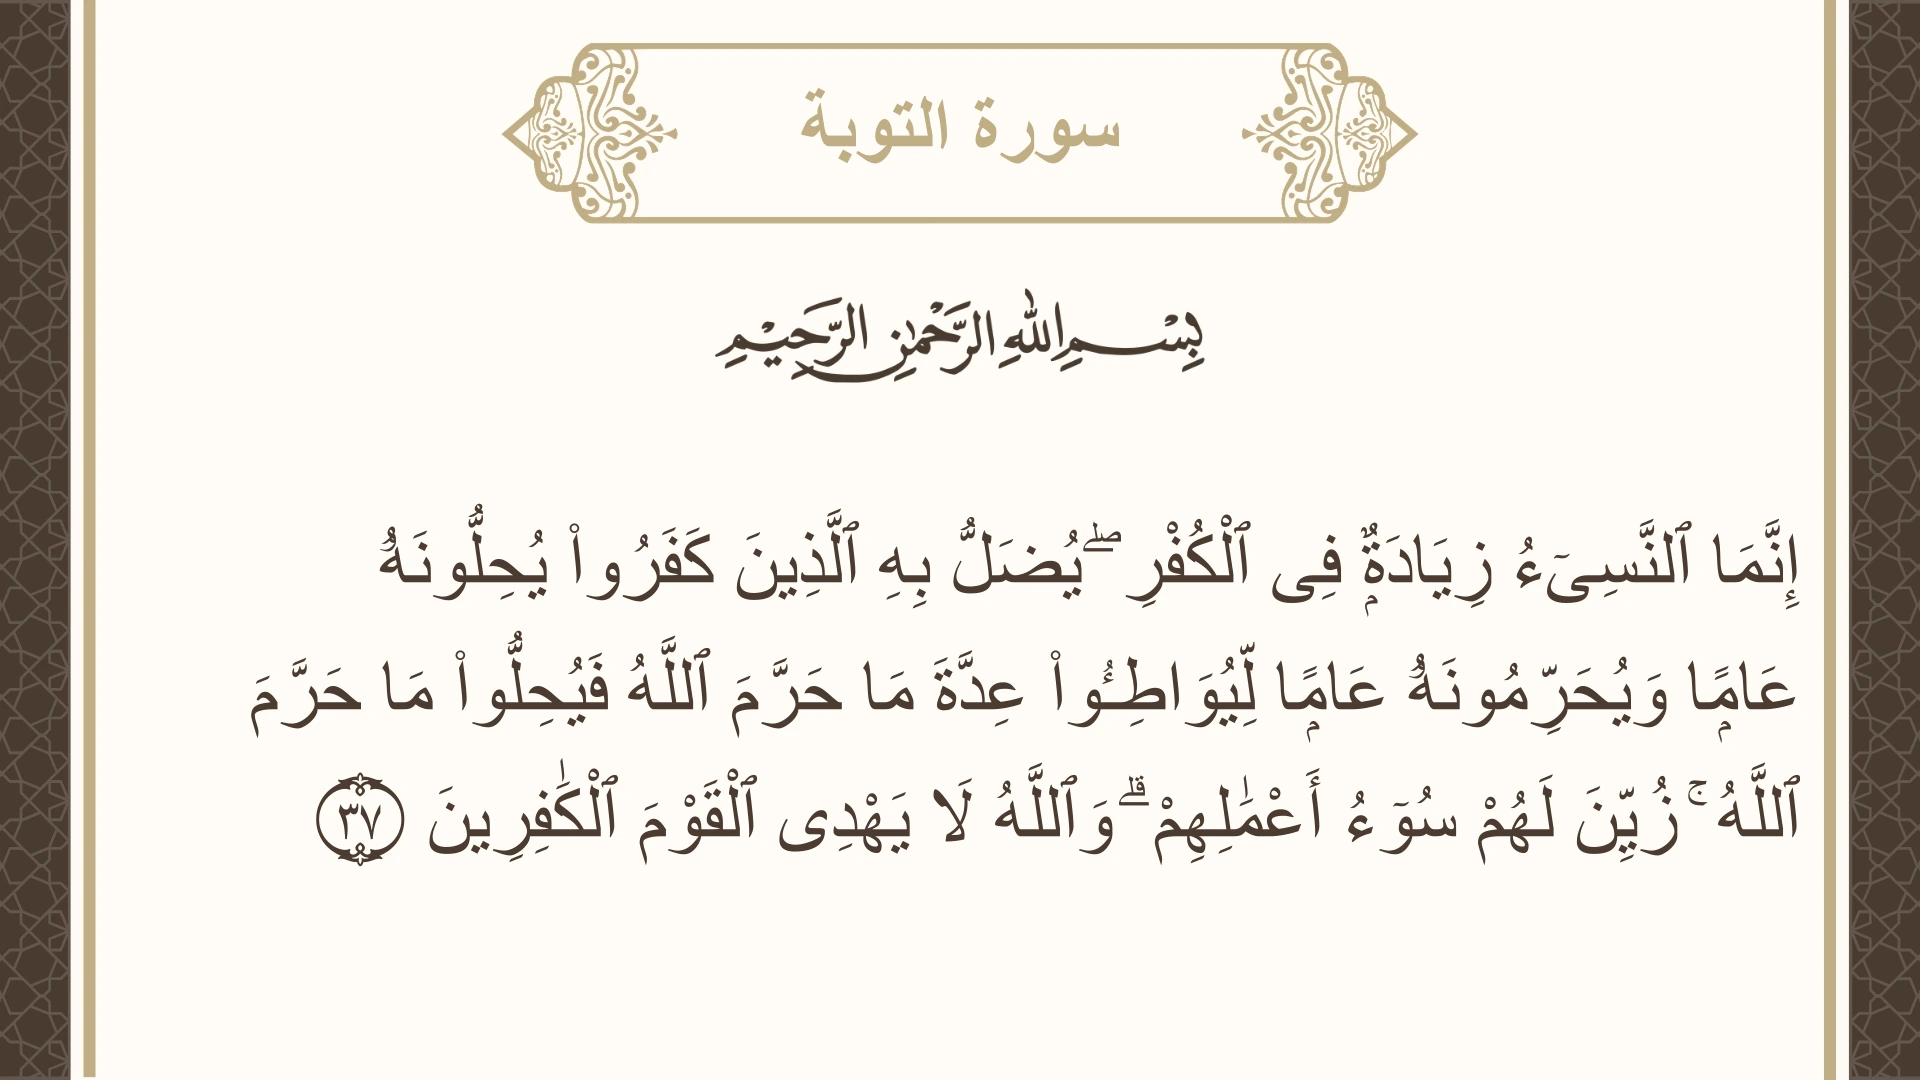 سورة التوبة
بِسْمِ اللهِ الرَّحْمٰنِ الرَّحِيْمِ
إِنَّمَا ٱلنَّسِىٓءُ زِيَادَةٌۭ فِى ٱلْكُفْرِ ۖ يُضَلُّ بِهِ ٱلَّذِينَ كَفَرُوا۟ يُحِلُّونَهُۥ
عَامًۭا وَيُحَرِّمُونَهُۥ عَامًۭا لِّيُوَاطِـُٔوا۟ عِدَّةَ مَا حَرَّمَ ٱللَّهُ فَيُحِلُّوا۟ مَا حَرَّمَ
ٱللَّهُ ۚ زُيِّنَ لَهُمْ سُوٓءُ أَعْمَـٰلِهِمْ ۗ وَٱللَّهُ لَا يَهْدِى ٱلْقَوْمَ ٱلْكَـٰفِرِينَ ٣٧